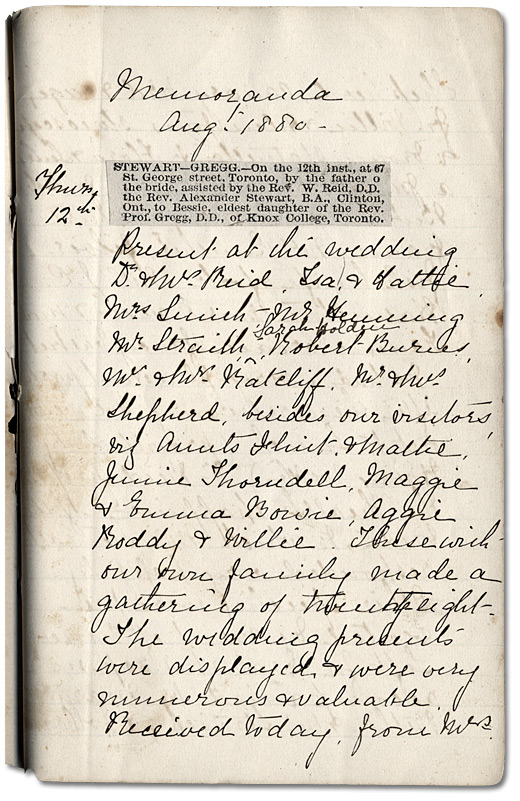 Memoranda
Aug. 1880 -
Thurs
12th
STEWART—GREGG.—On the 12th inst., at 67
St. George street, Toronto, by the father o
the bride, assisted by the Rev. W. Reid, D.D.
the Rev. Alexander Stewart, B.A., Clinton,
Ont., to Bessie, eldest daughter of the Rev.
Prof. Gregg, D.D., of Knox College, Toronto.
Present at the wedding
Dr & Mrs Reid, Isa, & Hattie,
Mrs Smith - Mr Henning
Sarah Golden
Mr Straith, Robert Burns,
Mr. & Mrs Ratcliff, Mr. & Mrs
Shepherd, besides our visitors,
viz Aunts Flint & Mattie,
Jennie Thorndell, Maggie
& Emma Bowie, Aggie
Roddy & Willie. These with
our own family made a
gathering of twenty eight -
The wedding presents
were displayed & were very
numerous & valuable.
Received today, from Mrs.